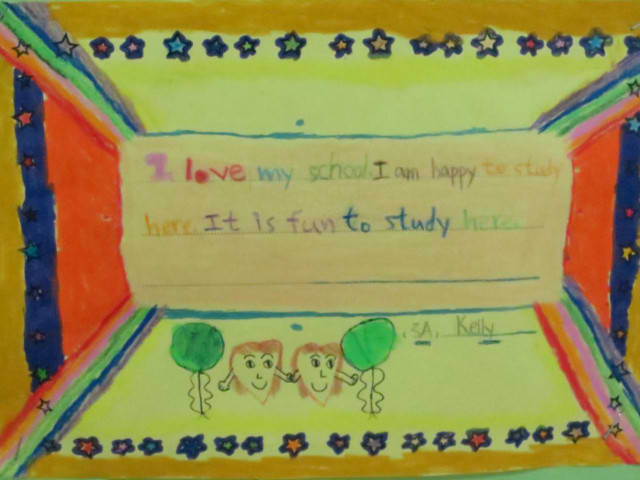 I love my school. I am happy to study
here. It is fun to study here.
3A, Kelly